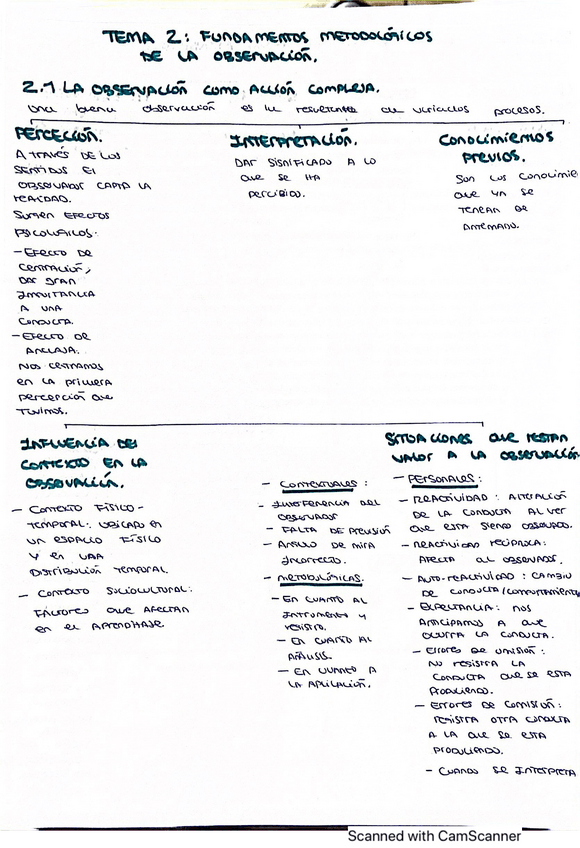 TEMA 2: FUNDAMENTOS METODOLÓGICOS
DE LA OBSERVACIÓN.
2.1 LA OBSERVACIÓN COMO ACCIÓN COMPLEJA.
Una buena observación es la resultante de variados procesos.
PERCECIÓN.
A TRAVÉS DE LOS
SENTIDOS EL
OBSERVADOR CAPTA LA
REALIDAD.
SURGEN EFECTOS
PSICOLÓGICOS:
- EFECTO DE
CENTRACIÓN,
DAR GRAN
IMPORTANCIA
A UNA
CONDUCTA.
- EFECTO DE
ANCLAJA.
NOS CENTRAMOS
en LA primera
percepción que
TUVIMOS.
INTERPRETACIÓN.
DAR SIGNIFICADO A LO
QUE SE HA
PERCIBIDO.
CONOCIMIENTOS
PREVIOS.
SON LOS CONOCIMIE
QUE YA SE
TENÍAN DE
ANTEMANO.
INFLUENCIA DEL
CONTEXTO EN LA
OBSERVACIÓN.
- CONTEXTO FÍSICO-
TEMPORAL: UBICADO EN
UN ESPACIO FÍSICO
Y EN UNA
DISTRIBUCIÓN TEMPORAL.
- CONTEXTO SOCIOCULTURAL:
FACTORES QUE AFECTAN
EN EL APRENDIZAJE.
- CONTEXTUALES:
- INTERFERENCIA DEL
OBSERVADOR
- FALTA DE PREVISIÓN
- ÁNGULO DE MIRA
INCORRECTO.
- METODOLÓGICAS.
- EN CUANTO AL
INSTRUMENTO Y
REGISTRO.
- EN CUANTO AL
ANÁLISIS.
- EN CUANTO A
LA APLICACIÓN.
SITUACIONES QUE RESTAN
VALOR A LA OBSERVACIÓN
- PERSONALES:
- REACTIVIDAD: ALTERACIÓN
DE LA CONDUCTA AL VER
QUE ESTÁ SIENDO OBSERVADO.
- REACTIVIDAD RECÍPROCA:
AFECTA AL OBSERVADOR.
- AUTO-REACTIVIDAD: CAMBIO
DE CONDUCTA/COMPORTAMIENTO
- EXPECTANCIA: NOS
ANTICIPAMOS A QUE
OCURRA LA CONDUCTA.
- ERRORES DE OMISIÓN:
NO REGISTRA LA
CONDUCTA QUE SE ESTÁ
PRODUCIENDO.
- ERRORES DE COMISIÓN:
REGISTRA OTRA CONDUCTA
A LA QUE SE ESTÁ
PRODUCIENDO.
- CUANDO SE INTERPRETA
Scanned with CamScanner